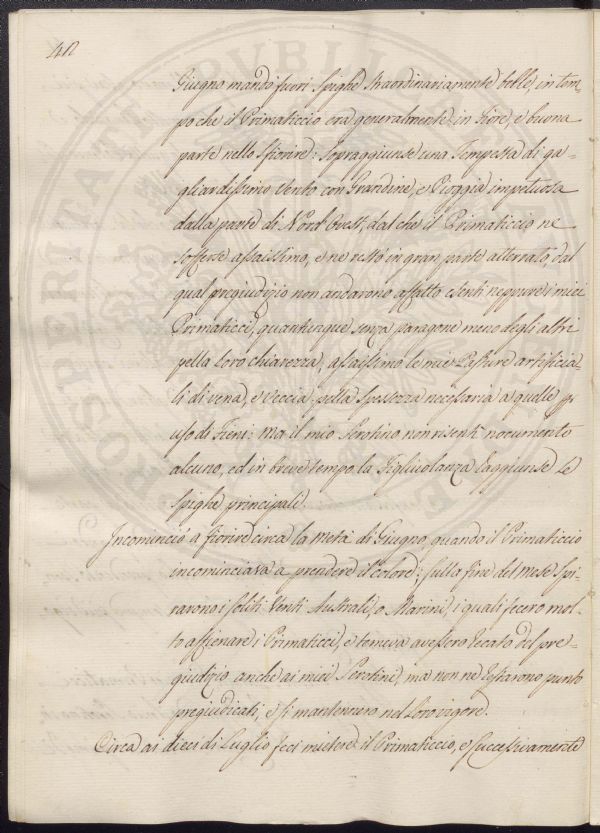 40
Giugno mandò fuori Spighe straordinariamente belle, in tem-
po che il Primaticcio era generalmente in Fiore, e buona
parte nello sfiorire: Sopraggiunse una Tempesta di ga-
gliardissimo Vento con Grandine, e Pioggia impetuosa
dalla parte di Nord Ovest, dal che il Primaticcio ne
sofferse assaissimo, e ne restò in gran parte atterrato, dal
qual pregiudizio non andarono affatto esenti neppure i miei
Primaticci, quantunque senza paragone meno degli altri
pella loro chiarezza, assaissimo le mie Pasture artificia-
li di vena, e Veccia, pella spessezza necessaria a quelle p
uso di Fieni: Ma il mio Serotino non risentì nocumento
alcuno, ed in breve tempo la Figliuolanza raggiunse le
Spighe principali.
Incominciò a fiorire circa la metà di Giugno, quando il Primaticcio
incominciava a prendere il colore; sulla fine del mese Spi-
rarono i soliti Venti Australi, o Marini, i quali fecero mol-
to affienare i Primaticci, e temeva avessero recato del pre-
giudizio anche ai miei Serotini, ma non ne restarono punto
pregiudicati, e si mantennero nel loro vigore.
Circa ai dieci di Luglio feci mietere il Primaticcio, e successivamente
PROSPERITATI PVBLI